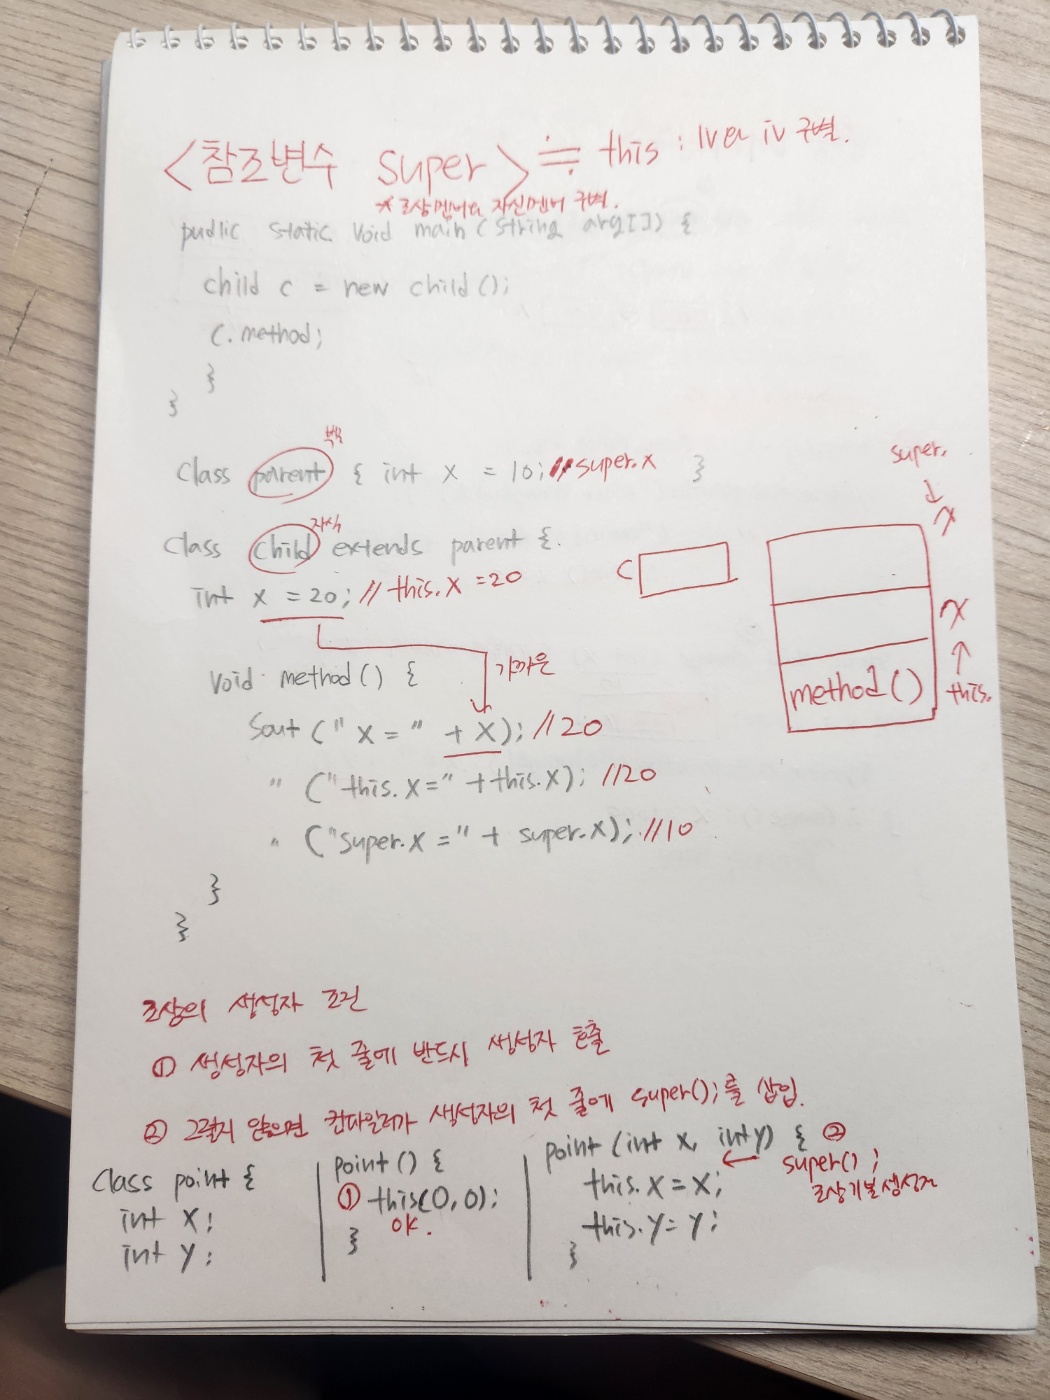 <참조변수 super> ≒ this : lv와 iv 구별.
* 조상멤버와 자신멤버 구별.
public static void main(String arg[]) {
child c = new child();
c.method;
}
}
부모
Class parent { int x = 10; // super.x }
자식
Class child extends parent {
int x = 20; // this.x = 20
void method() {
가까운
Sout ("x=" + x); //20
" ("this.x=" + this.x); //20
" ("super.x =" + super.x); //10
}
}
super.
↓
x
C
x
↑
this.
method()
조상의 생성자 조건
① 생성자의 첫 줄에 반드시 생성자 호출
② 그렇지 않으면 컴파일러가 생성자의 첫 줄에 super();를 삽입.
Class point {
int x;
int y;
point () {
① this(0,0);
ok.
}
point (int x, int y) { ②
← super();
조상기본생성자
this.x = x;
this.y = y;
}